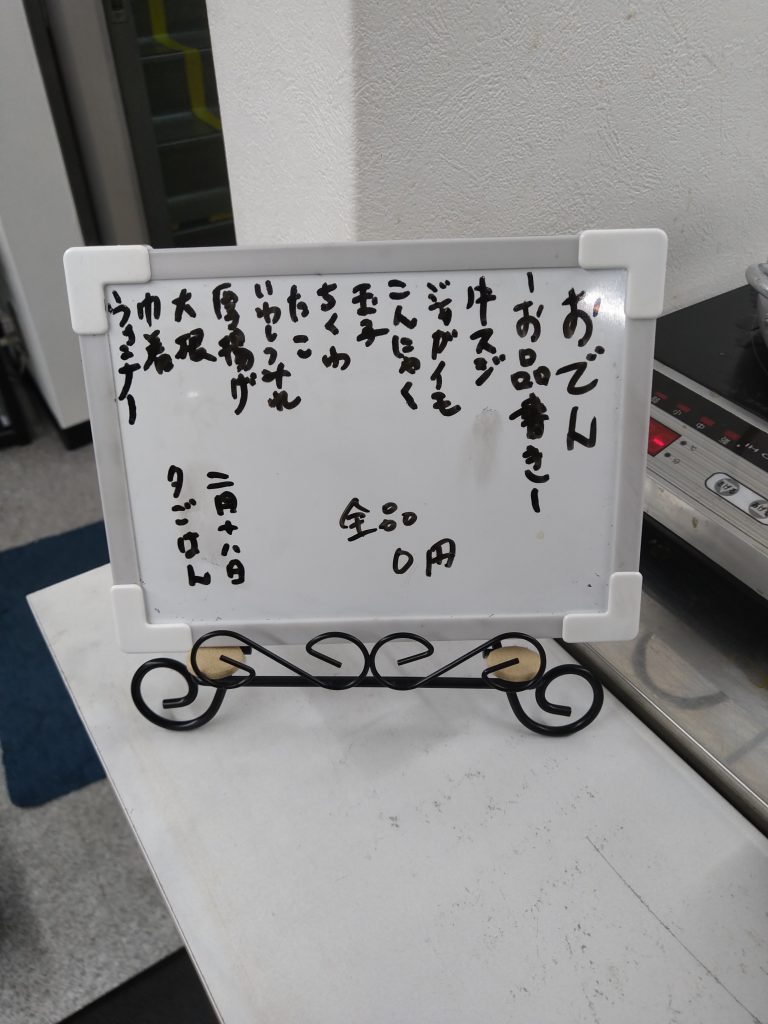 おでん
-お品書き-
牛スジ
ジャガイモ
こんにゃく
玉子
ちくわ
たこ
いわしつみれ
厚揚げ
大根
巾着
ウインナー
全品
0円
二月十八日
夕ごはん